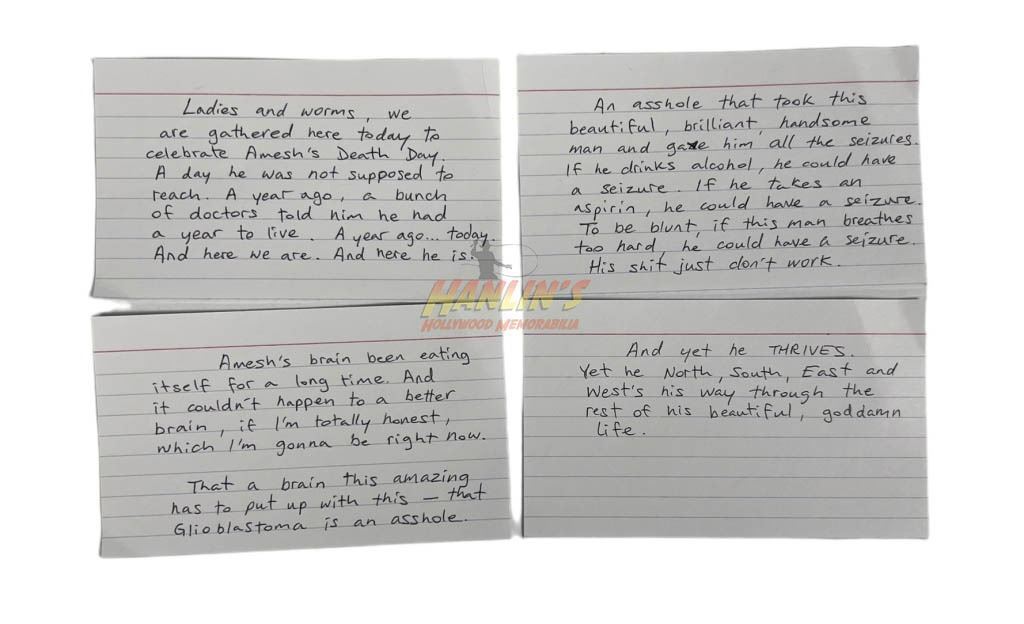 Ladies and worms, we
are gathered here today to
celebrate Amesh's Death Day.
A day he was not supposed to
reach. A year ago, a bunch
of doctors told him he had
a year to live. A year ago... today.
And here we are. And here he is.
Amesh's brain been eating
itself for a long time. And
it couldn't happen to a better
brain, if I'm totally honest,
which I'm gonna be right now.
That a brain this amazing
has to put up with this — that
Glioblastoma is an asshole.
An asshole that took this
beautiful, brilliant, handsome
man and gave him all the seizures.
If he drinks alcohol, he could have
a seizure. If he takes an
aspirin, he could have a seizure.
To be blunt, if this man breathes
too hard, he could have a seizure.
His shit just don't work.
And yet he THRIVES.
Yet he North, South, East and
West's his way through the
rest of his beautiful, goddamn
life.
HANLIN'S
HOLLYWOOD MEMORABILIA